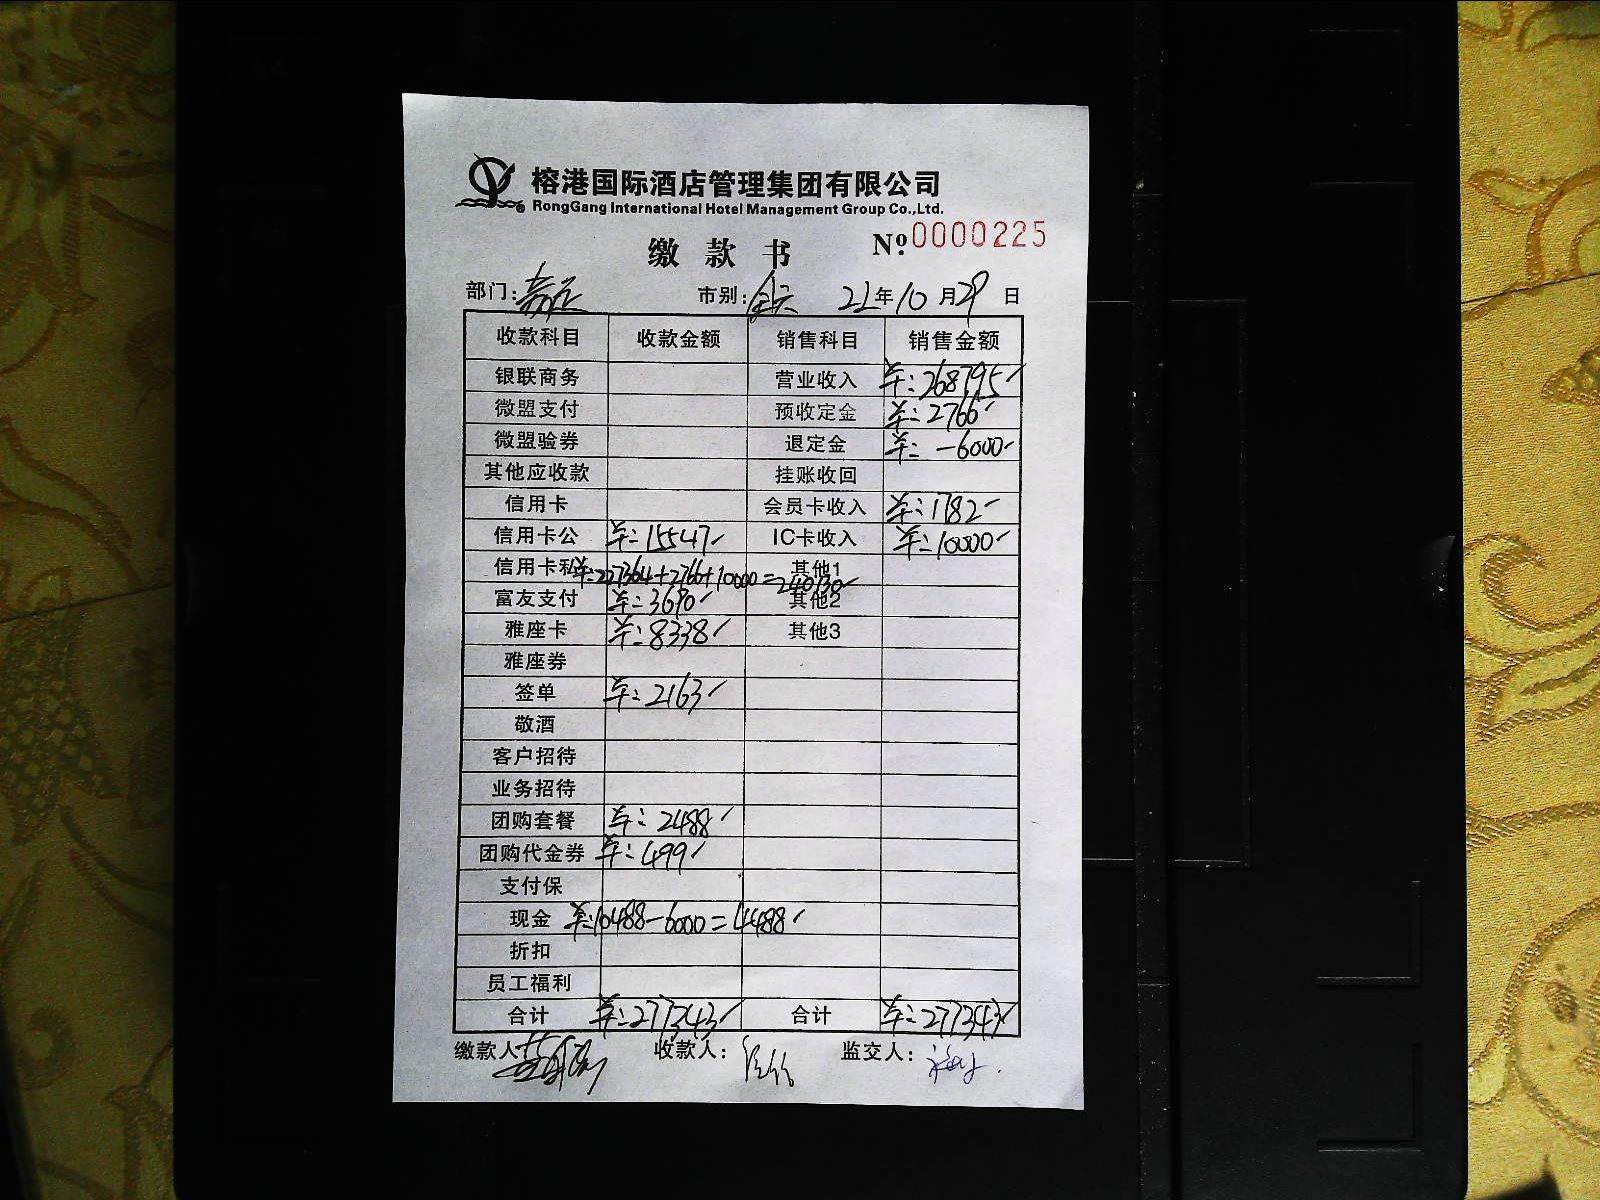 榕港国际酒店管理集团有限公司
RongGang International Hotel Management Group Co.,Ltd.
缴款书 №0000225
部门： 市别：全天 22年10月29日
收款科目 收款金额 销售科目 销售金额
银联商务 营业收入 ¥：268795
微盟支付 预收定金 ¥：2766
微盟验券 退定金 ¥：-6000
其他应收款 挂账收回
信用卡 会员卡收入 ¥：1782
信用卡公 ¥：15547 IC卡收入 ¥：10000
信用卡私 ¥：227364+2766+10000=240130 其他1
富友支付 ¥：3690 其他2
雅座卡 ¥：8338 其他3
雅座券
签单 ¥：2163
敬酒
客户招待
业务招待
团购套餐 ¥：2488
团购代金券 ¥：499
支付保
现金 ¥：10488-6000=4488
折扣
员工福利
合计 ¥：277343 合计 ¥：277343
缴款人 收款人： 监交人：